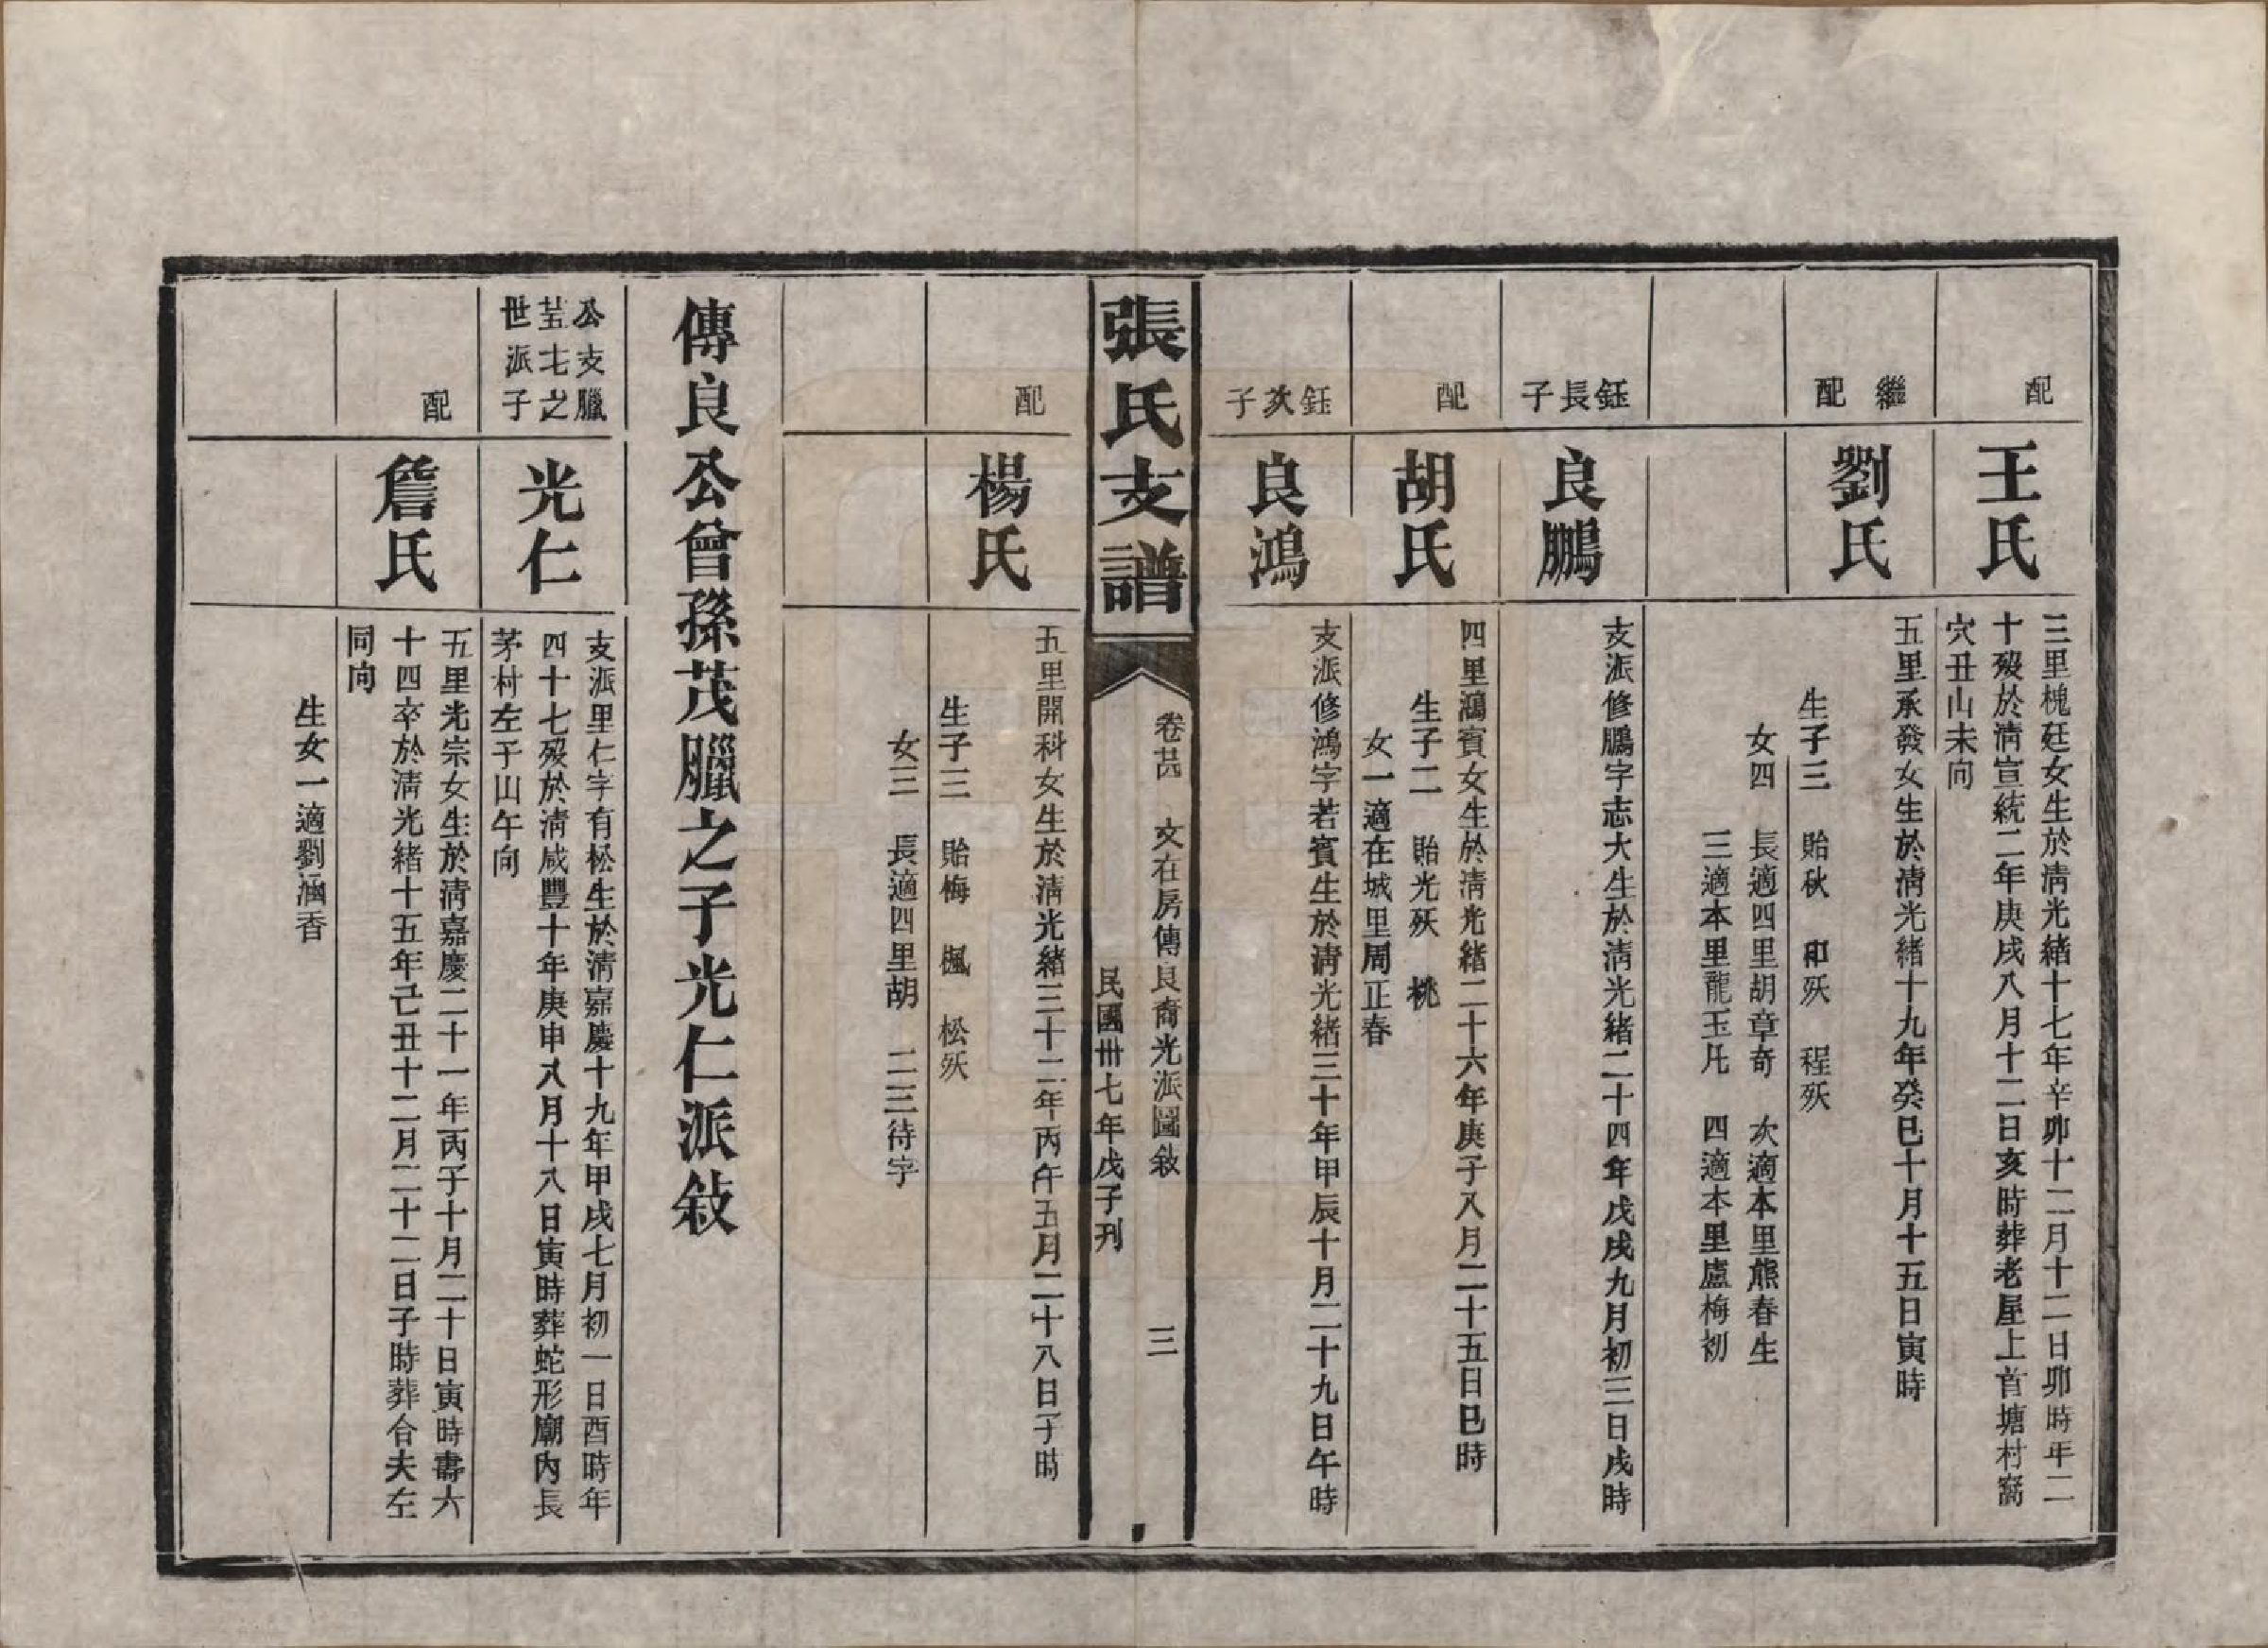 配
王氏
三里槐廷女生於清光緒十七年辛卯十二月十二日卯時年二
十歿於清宣統二年庚戌八月十二日亥時葬老屋上首塘村窩
穴丑山未向
繼配
劉氏
五里承發女生於清光緒十九年癸巳十月十五日寅時
生子三 貽秋 和殀 程殀
女四 長適四里胡章奇 次適本里熊春生
三適本里龍玉凡 四適本里盧梅初
鈺長子
良鵬
支派修鵬字志大生於清光緒二十四年戊戌九月初三日戌時
配
胡氏
四里鴻賓女生於清光緒二十六年庚子八月二十五日巳時
生子二 貽光殀 桃
女一適在城里周正春
鈺次子
良鴻
支派修鴻字若賓生於清光緒三十年甲辰十月二十九日午時
張氏支譜
卷廿四 文在房傳良裔光派圖敘 三
民國卅七年戊子刊
配
楊氏
五里開科女生於清光緒三十二年丙午五月二十八日子時
生子三 貽梅 楓 松殀
女三 長適四里胡 二三待字
傳良公曾孫茂臘之子光仁派敘
公支臘
七之
世派子
光仁
支派里仁字有松生於清嘉慶十九年甲戌七月初一日酉時年
四十七歿於清咸豐十年庚申八月十八日寅時葬蛇形廟內長
茅村左子山午向
配
詹氏
五里光宗女生於清嘉慶二十一年丙子十月二十日寅時壽六
十四卒於清光緒十五年己丑十二月二十二日子時葬合夫左
同向
生女一適劉涵香